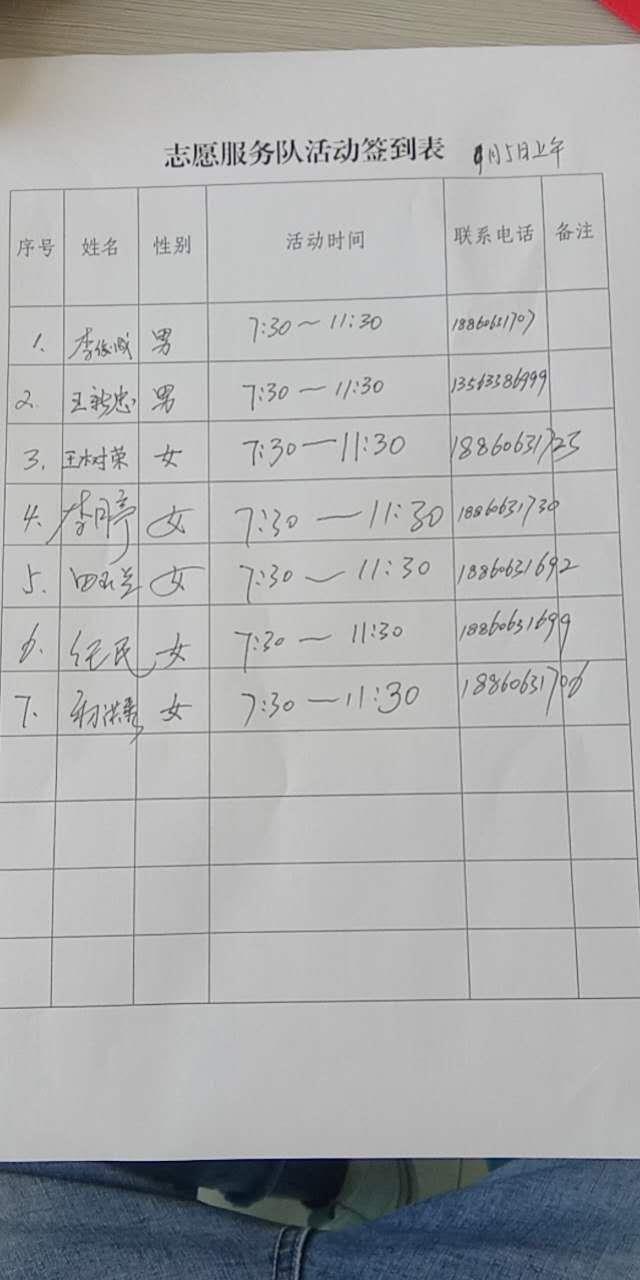 志愿服务队活动签到表 9月5日上午
序号 姓名 性别 活动时间 联系电话 备注
1. 李俊成 男 7:30~11:30 18860631707
2. 王新忠 男 7:30—11:30 13563386999
3. 王树荣 女 7:30—11:30 18860631725
4. 李月亭 女 7:30—11:30 18860631730
5. 田玉兰 女 7:30—11:30 18860631692
6. 任民 女 7:30—11:30 18860631699
7. 女 7:30—11:30 18860631706